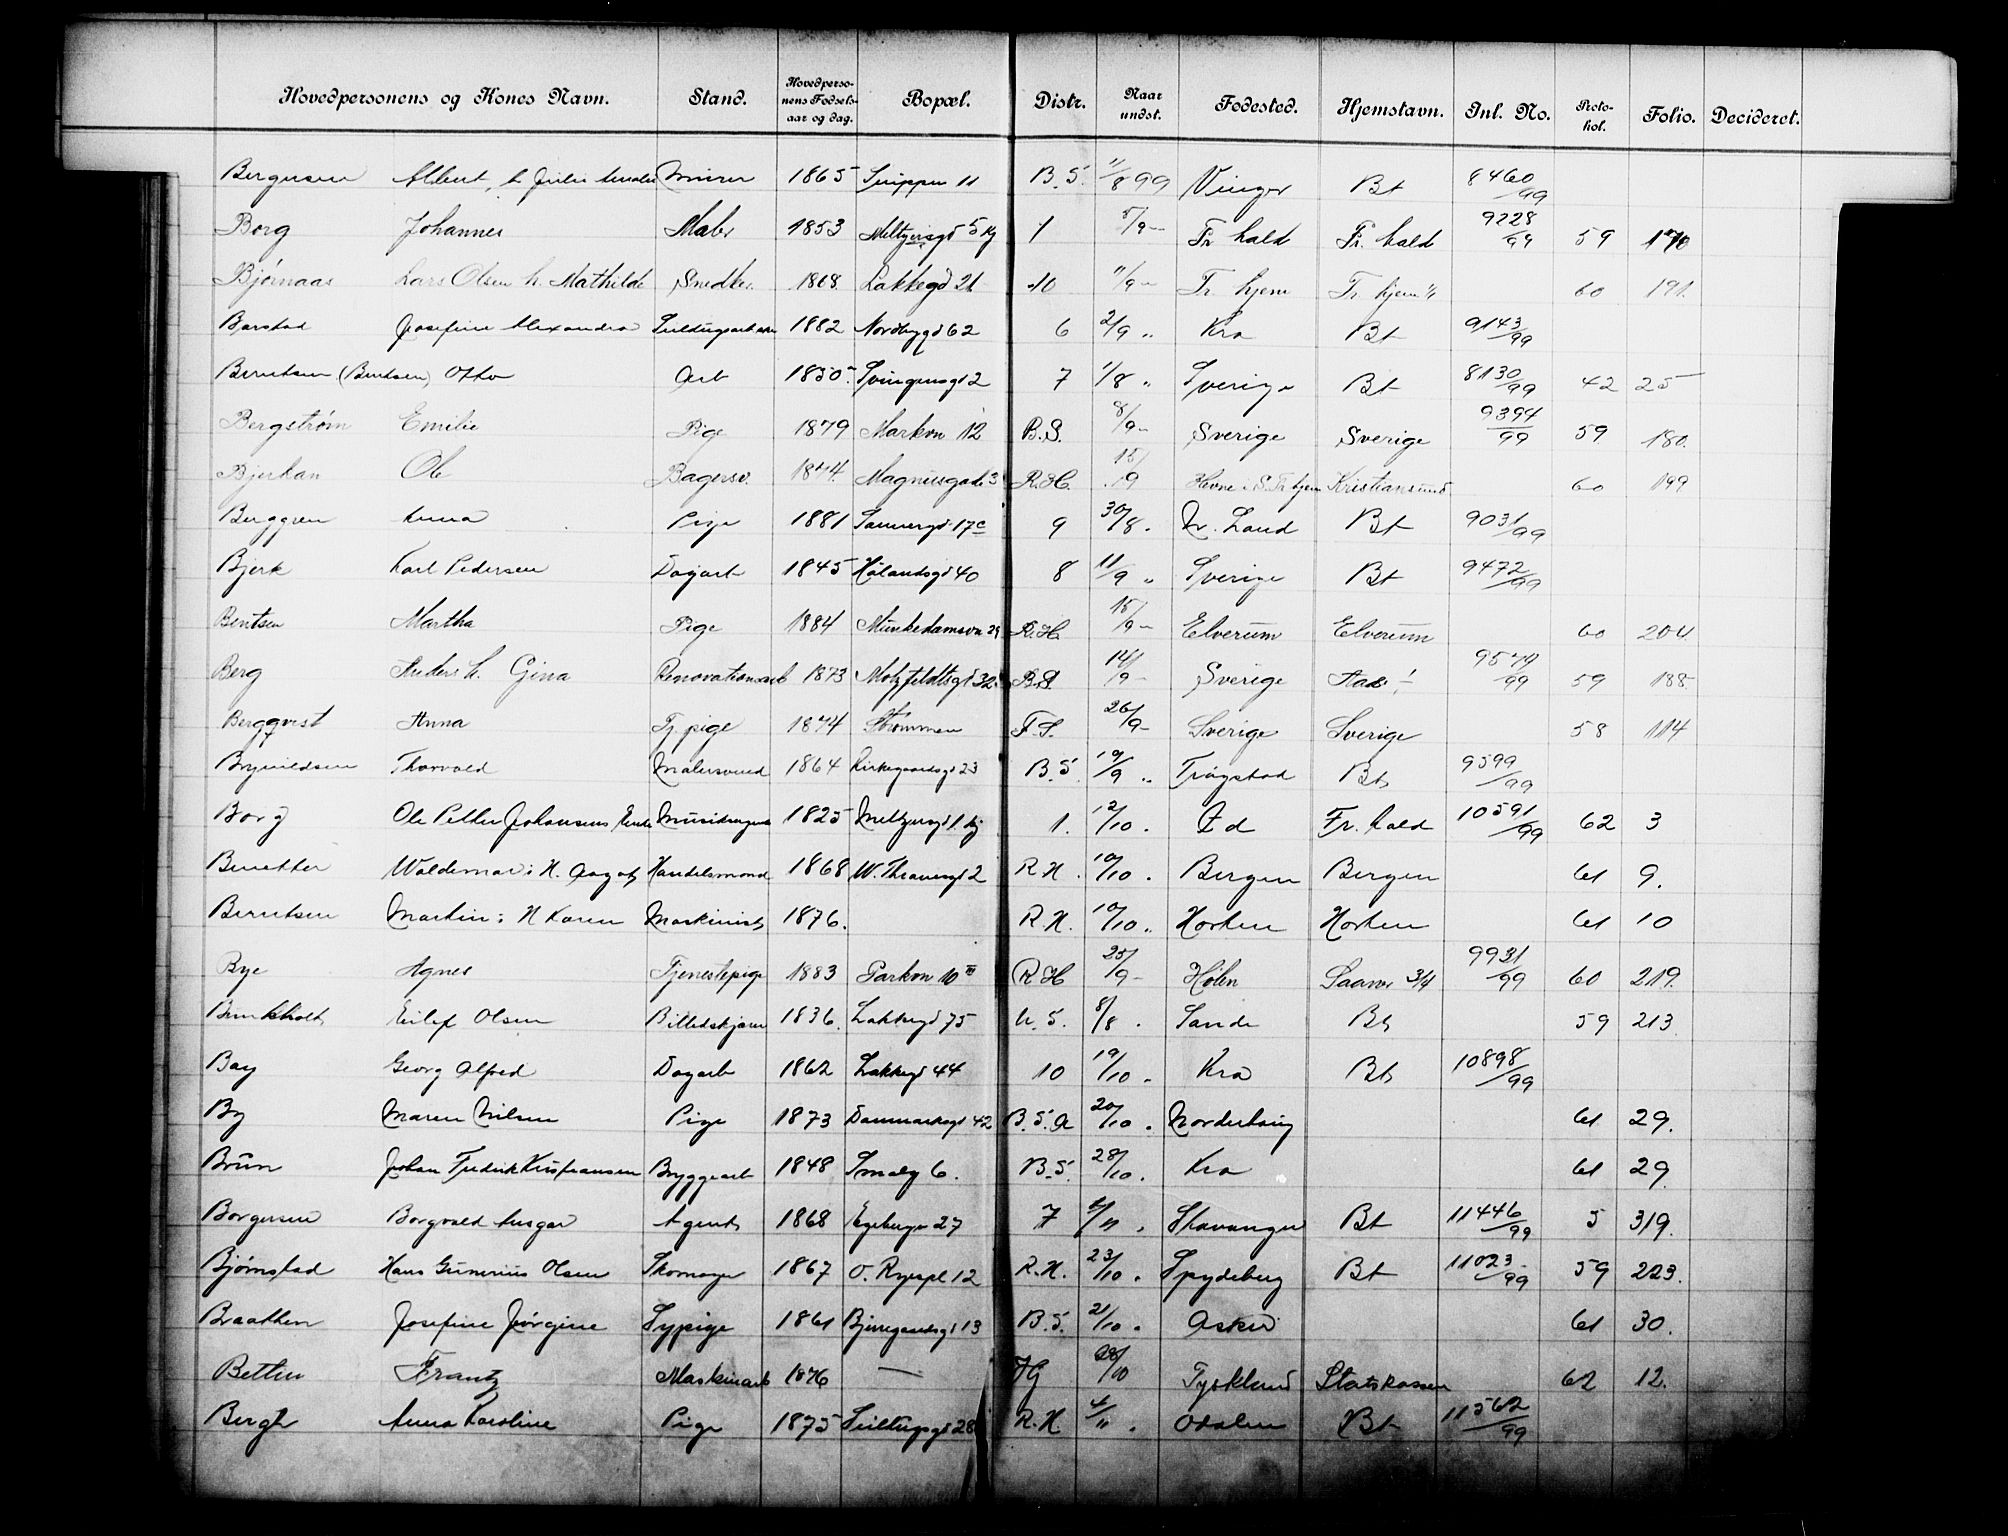 Hovedpersonens og Kones Navn. Stand. Hovedpersonens Fødselsaar og dag. Bopæl. Distr. Naar undst. Fødested. Hjemstavn. Jnl. No. Protokol. Folio. Decideret.
Bergersen Albert, h. Murer 1865 11 B.S. 1/8 99 Vinger Bt 8460/99
Borg Johannes Maler 1853 Meltzersgd 5 Kj 1 /9 - Fr hald Fr. hald 9228/99 59 170
Bjørnaas Lars Olsen h. Mathilde Snedker 1868. Lakkegd 21 10 11/9 - Tr. hjem Tr. hjem 60 191.
Barstad Josefine Alexandra 1882 Nordbygd 62 6 2/9 " Kra Bt 9143/99
Berntsen (Bentsen) Otto Arb 1850. Springersgd 2 7 1/8 " Sverige Bt 8130/99 42 25
Bergstrøm Emilie Pige 1879 Markvn 12 B.S. 8/9 - Sverige Sverige 9394/99 59 180.
Bjerkan Ole Bagersv. 1874. Magnusgade 3 R.H. 15/9 Hevne i S. Tr hjem Kristiansund 60 199
Berggren Anna Pige 1881 Sannergd 17c 9 30/8 . N. Land Bt 9031/99
Bjerk Karl Pedersen Dagarb 1845 Hølandsgd 40 8 11/9 " Sverige Bt 9472/99
Bentsen Martha Pige 1884 Munkedamsvn 29 R.H. 15/9 - Elverum Elverum 60 204
Berg Anders h. Gina Renovationsarb 1873 Motzfeldtsgd 32 B.S. 14/9 - Sverige 9579/99 59 188.
Bergqvist Anna Tj. pige 1874 Strømmen F.S. 26/9 - Sverige Sverige 58 114
Brynildsen Thorvald Malersvend 1864 Kirkegaardsgd 23 B.S. 19/9 " Trøgstad Bt 9599/99
Borg Ole Petter Johansens Enke 1825 Meltzersgd 1. Kj 1. 12/10 . Id Fr. hald 10591/99 62 3
Waldemar: H. Aagot Handelsmand 1868 W. Thranesgd 2 R.H. 10/10 . Bergen Bergen 61 9.
Berntsen Martin: H Karen Maskinist 1876. R.H. 10/10 " Horten Horten 61 10
Bye Agnes Tjenestepige 1883 Parkvn 10 III R H 25/9 - Hølen Saaner 3/4 9931/99 60 219.
Eilef Olsen Billedskjærer 1836. Lakkegd 75 U.S. 8/8 . Sande Bt 59 213
Bay Georg Alfred Dagarb 1862 Lakkegd 44 10 19/10 . Kra Bt 10898/99
By Maren Nilsen Pige 1873 Danmarksgd 42 B.S.A 20/10 . Norderhaug 61 29.
Brun Johan Fredrik Kristiansen Bryggearb 1848 Smalg 6. B.S. 28/10 . Kra 61 29.
Borgersen Borgvald Ansgar Agent 1868 Egebergv 27 7 /11 . Stavanger Bt 11446/99 5 319.
Bjørnstad Hans Gunerius Olsen Skomager 1867 O. Ryespl 12 R.H. 23/10 . Spydeberg Bt 11023/99 59 223.
Braathen Josefine Jørgine Sypige 1861 Bjerregaardsgd 13 B.S. 21/10 . Asker 61 30.
Bettin Frantz Maskinarb 1876 — 28/10 Tyskland Statskassen 62 12.
Bergh Anna Karoline Pige 1875 Seildugsgd 28 R.H. 4/11 . Odalen Bt 11562/99